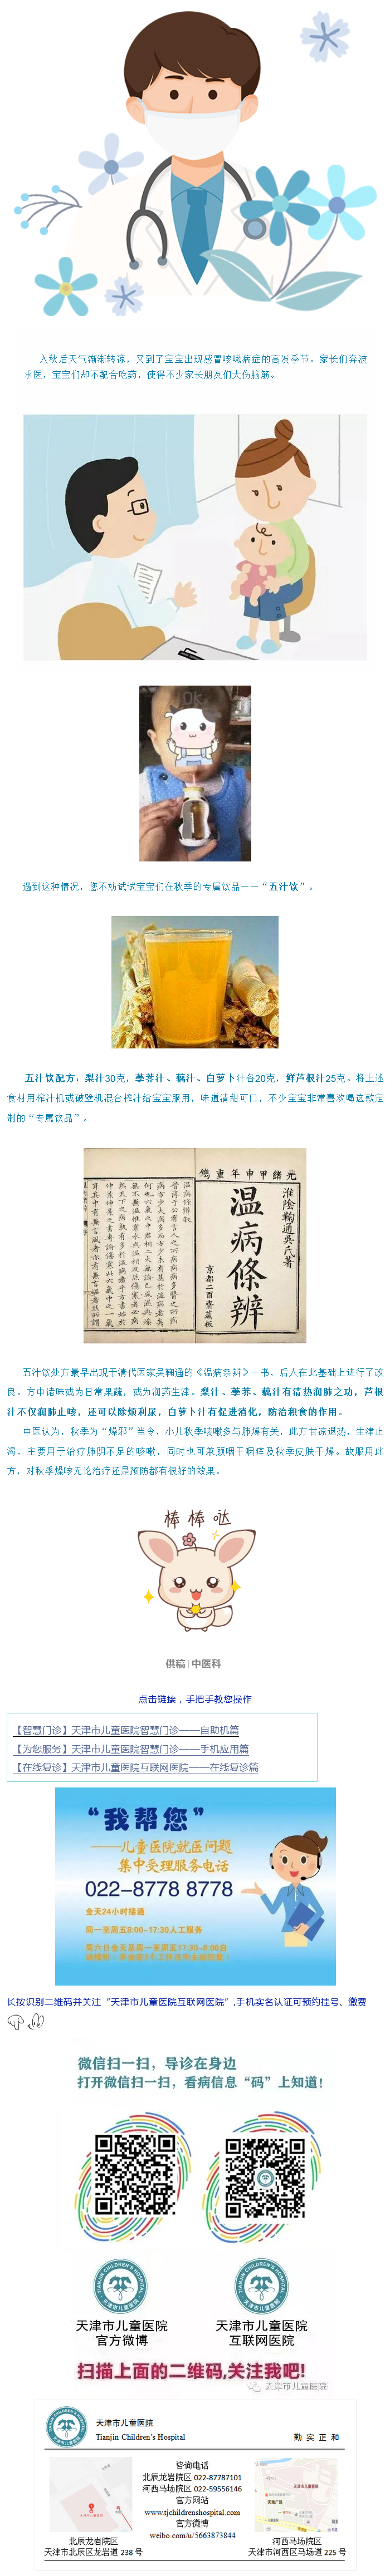 入秋后天气渐渐转凉，又到了宝宝出现感冒咳嗽病症的高发季节。家长们奔波
求医，宝宝们却不配合吃药，使得不少家长朋友们大伤脑筋。
Ok
遇到这种情况，您不妨试试宝宝们在秋季的专属饮品——“五汁饮”。
五汁饮配方，梨汁30克，荸荠汁、藕汁、白萝卜汁各20克，鲜芦根汁25克。将上述
食材用榨汁机或破壁机混合榨汁给宝宝服用，味道清甜可口，不少宝宝非常喜欢喝这款定
制的“专属饮品”。
光绪甲申年重鐫
淮陰鞠通吳氏著
溫病條辨
京都二酉齋藏板
五汁饮处方最早出现于清代医家吴鞠通的《温病条辨》一书，后人在此基础上进行了改
良。方中诸味或为日常果蔬，或为润药生津。梨汁、荸荠、藕汁有清热润肺之功，芦根
汁不仅润肺止咳，还可以除烦利尿，白萝卜汁有促进消化，防治积食的作用。
中医认为，秋季为“燥邪”当令，小儿秋季咳嗽多与肺燥有关，此方甘凉退热，生津止
渴，主要用于治疗肺阴不足的咳嗽，同时也可兼顾咽干咽痒及秋季皮肤干燥。故服用此
方，对秋季燥咳无论治疗还是预防都有很好的效果。
棒棒哒
供稿|中医科
点击链接，手把手教您操作
【智慧门诊】天津市儿童医院智慧门诊——自助机篇
【为您服务】天津市儿童医院智慧门诊——手机应用篇
【在线复诊】天津市儿童医院互联网医院——在线复诊篇
“我帮您”
——儿童医院就医问题
集中受理服务电话
022-8778 8778
全天24小时接通
周一至周五8:00-17:30人工服务
长按识别二维码并关注“天津市儿童医院互联网医院”,手机实名认证可预约挂号、缴费
微信扫一扫，导诊在身边
打开微信扫一扫，看病信息“码”上知道！
TIANJIN CHILDREN'S HOSPITAL
天津市儿童医院
TIANJIN CHILDREN'S HOSPITAL
天津市儿童医院
天津市儿童医院
官方微博
天津市儿童医院
互联网医院
扫描上面的二维码,关注我吧!
天津市儿童医院
天津市儿童医院
Tianjin Children's Hospital
勤 实 正 和
咨询电话
北辰龙岩院区 022-87787101
河西马场院区 022-59556146
官方网站
www.tjchildrenshospital.com
官方微博
weibo.com/u/5663873844
北辰龙岩院区
天津市北辰区龙岩道 238 号
河西马场院区
天津市河西区马场道 225 号